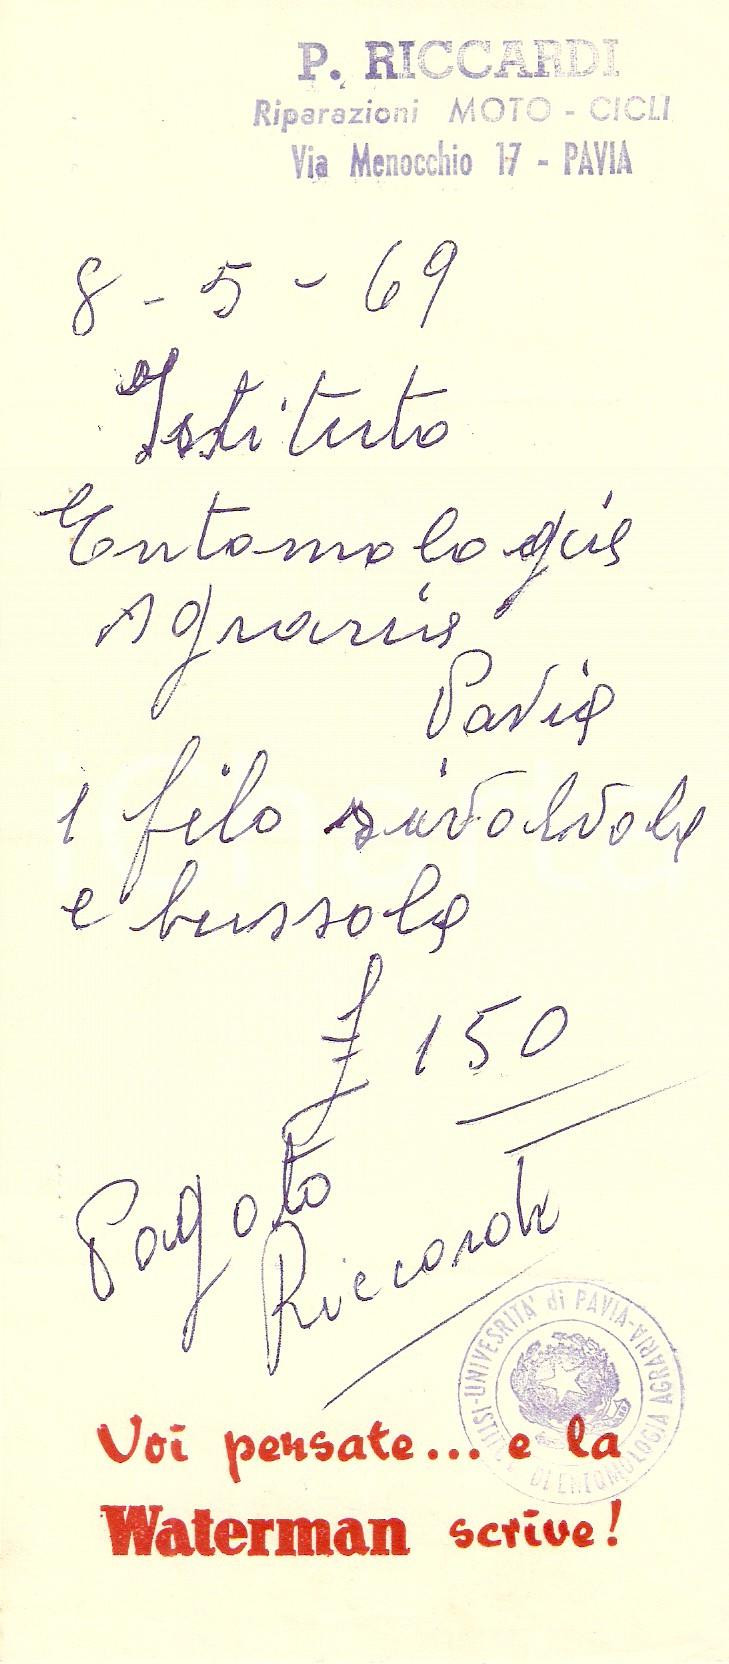 P. RICCARDI
Riparazioni MOTO - CICLI
Via Menocchio 17 - PAVIA
8 - 5 - 69
Istituto
Entomologia
Agraria
Pavia
1 filo
e bussola
£ 150
Pagato
Riccardi
UNIVESRITA' di PAVIA - DI ENTOMOLOGIA AGRARIA
Voi pensate... e la
Waterman scrive!